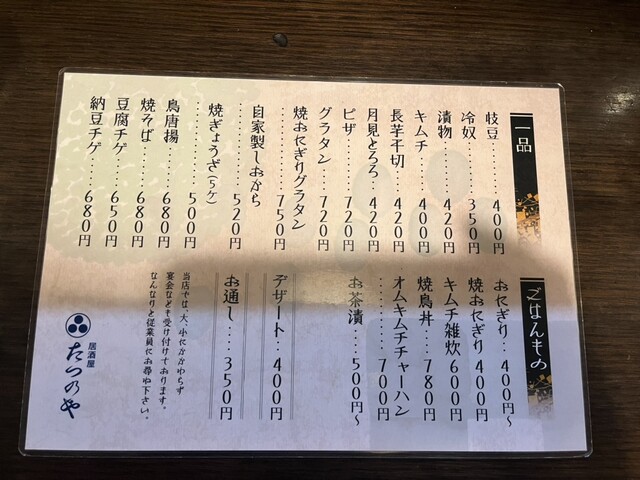 一品
枝豆・・・・・400円
冷奴・・・・・350円
漬物・・・・・420円
キムチ・・・・400円
長芋千切・・・420円
月見とろろ・・420円
ピザ・・・・・720円
グラタン・・・720円
焼おにぎりグラタン
・・・・・・・750円
自家製しおから
・・・・・・・520円
焼ぎょうざ(5ケ)
・・・・・・・500円
鳥唐揚・・・・680円
焼そば・・・・680円
豆腐チゲ・・・650円
納豆チゲ・・・680円
ごはんもの
おにぎり・・400円〜
焼おにぎり 400円
キムチ雑炊 600円
焼鳥丼・・・780円
オムキムチチャーハン
・・・・・・700円
お茶漬・・・500円〜
デザート・・400円
お通し・・・350円
当店では、大、小にかかわらず
宴会なども受け付けております。
なんなりと従業員にお尋ね下さい。
居酒屋
たつのや